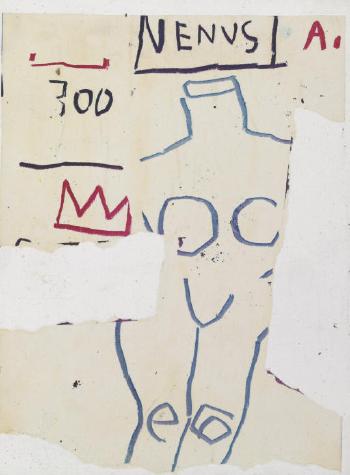 VENUS A.
300